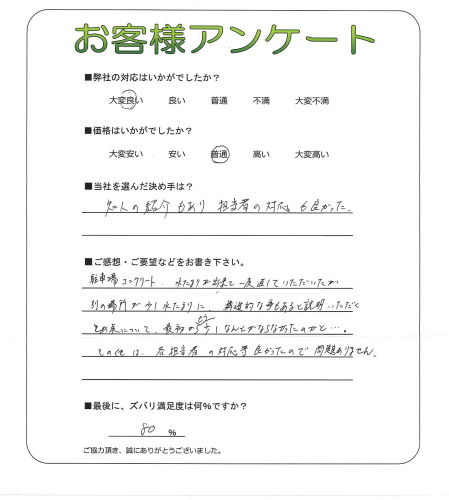 お客様アンケート
■弊社の対応はいかがでしたか？
大変良い 良い 普通 不満 大変不満
■価格はいかがでしたか？
大変安い 安い 普通 高い 大変高い
■当社を選んだ決め手は？
知人の紹介もあり 担当者の対応も良かった.
■ご感想・ご要望などをお書き下さい。
駐車場コンクリート、水たまりが出来て一度直していただいたが
別の場所が少し水たまりに、構造的な事もあると説明いただく
その点について、最初から もう少しなんとかならなかったのかと…。
その他は、各担当者の対応等良かったので問題ありません.
■最後に、ズバリ満足度は何%ですか？
80 %
ご協力頂き、誠にありがとうございました。